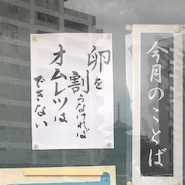 今月のことば
卵を
割らなければ
オムレツは
できない